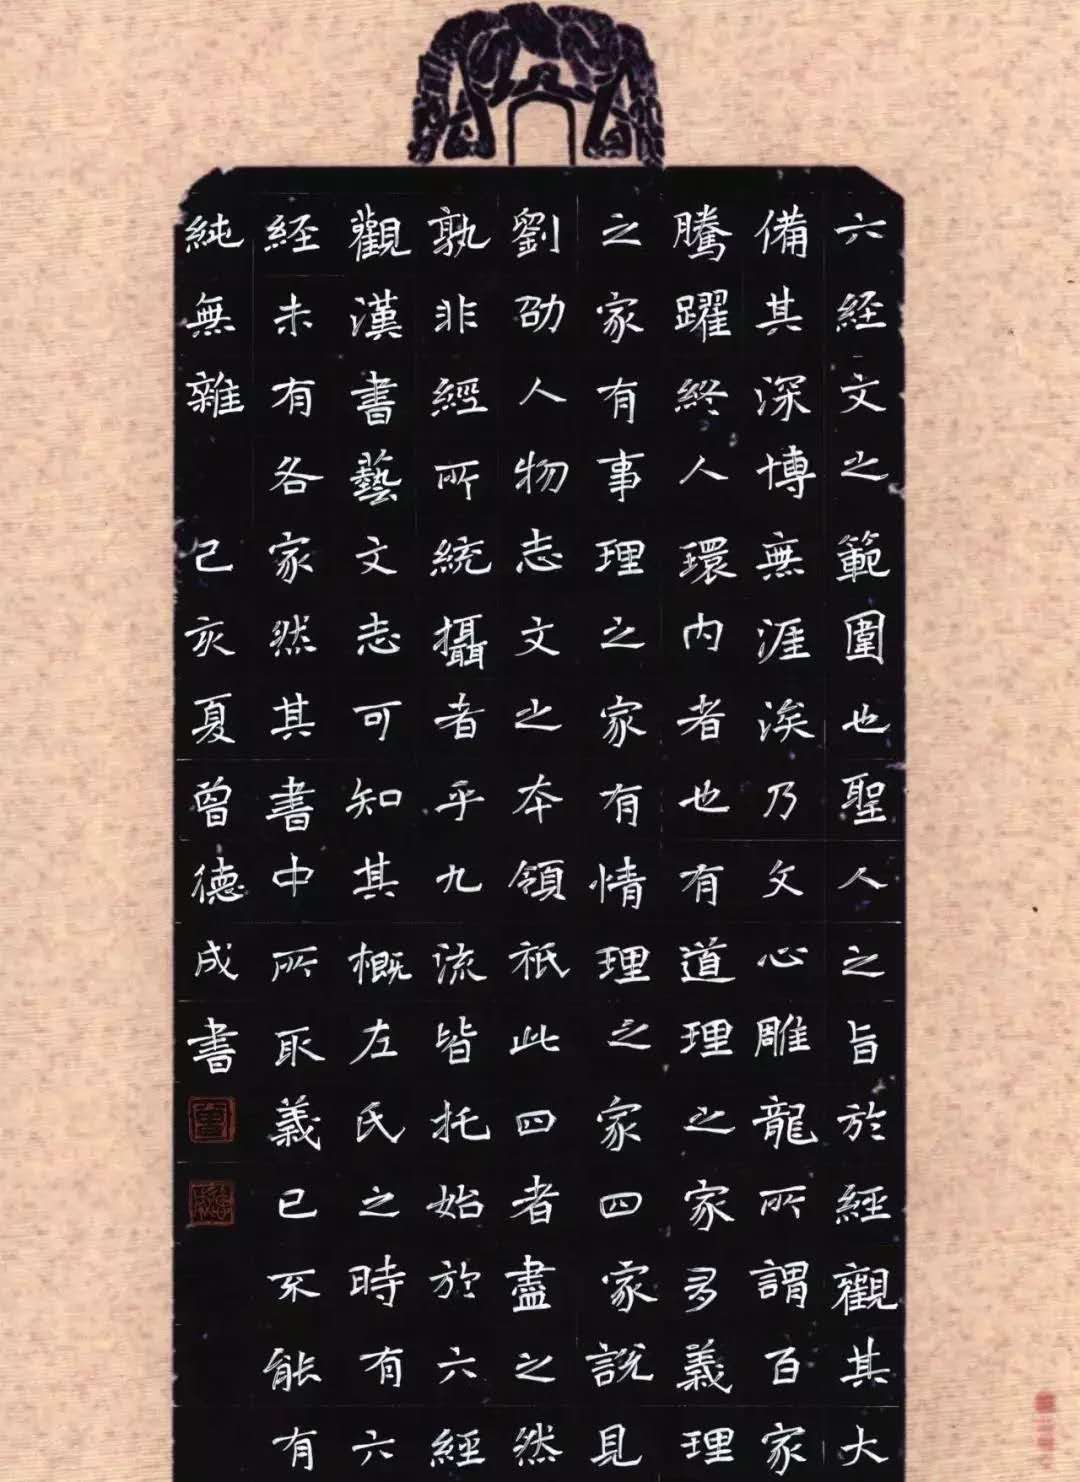 六経文之範圍也聖人之旨於経觀其大
備其深博無涯涘乃文心雕龍所謂百家
騰躍終人環内者也有道理之家有義理
之家有事理之家有情理之家四家說見
劉劭人物志文之本領祇此四者盡之然
孰非經所統攝者乎九流皆托始於六經
觀漢書藝文志可知其概左氏之時有六
経未有各家然其書中所取義已不能有
純無雜 己亥夏曾德成書